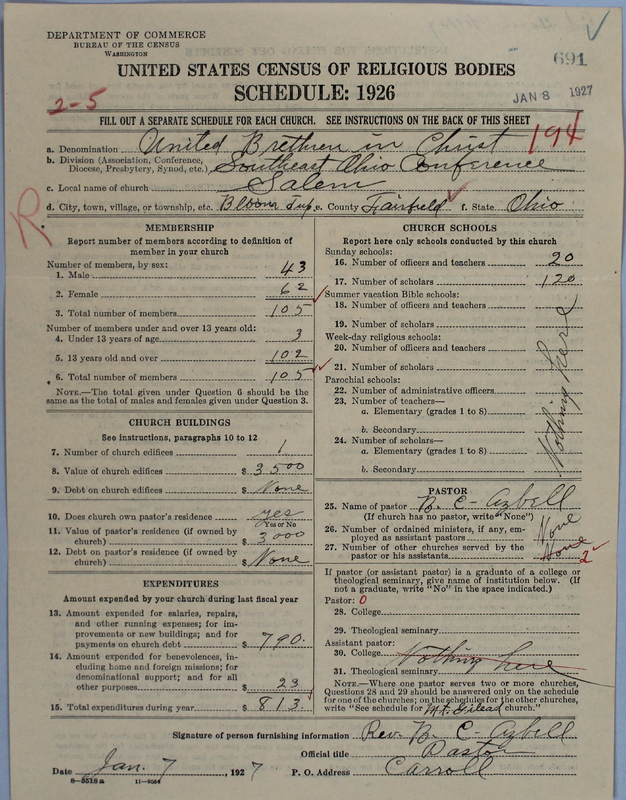 DEPARTMENT OF COMMERCE
BUREAU OF THE CENSUS
WASHINGTON
691
UNITED STATES CENSUS OF RELIGIOUS BODIES
SCHEDULE: 1926
JAN 8 1927
2-5
FILL OUT A SEPARATE SCHEDULE FOR EACH CHURCH. SEE INSTRUCTIONS ON THE BACK OF THIS SHEET
a. Denomination United Brethren in Christ 194
b. Division (Association, Conference, Diocese, Presbytery, Synod, etc.) Southeast Ohio Conference
c. Local name of church Salem
d. City, town, village, or township, etc. Bloom Twp. e. County Fairfield f. State Ohio
R
MEMBERSHIP
Report number of members according to definition of member in your church
Number of members, by sex:
1. Male 43
2. Female 62
3. Total number of members 105
Number of members under and over 13 years old:
4. Under 13 years of age 3
5. 13 years old and over 102
6. Total number of members 105
NOTE.—The total given under Question 6 should be the same as the total of males and females given under Question 3.
CHURCH BUILDINGS
See instructions, paragraphs 10 to 12
7. Number of church edifices 1
8. Value of church edifices $ 3500
9. Debt on church edifices $ None
10. Does church own pastor's residence yes
Yes or No
11. Value of pastor's residence (if owned by church) $ 3000
12. Debt on pastor's residence (if owned by church) $ None
EXPENDITURES
Amount expended by your church during last fiscal year
13. Amount expended for salaries, repairs, and other running expenses; for improvements or new buildings; and for payments on church debt $ 790.
14. Amount expended for benevolences, including home and foreign missions; for denominational support; and for all other purposes $ 23
15. Total expenditures during year $ 813.
CHURCH SCHOOLS
Report here only schools conducted by this church
Sunday schools:
16. Number of officers and teachers 20
17. Number of scholars 120
Summer vacation Bible schools:
18. Number of officers and teachers
19. Number of scholars
Week-day religious schools:
20. Number of officers and teachers
21. Number of scholars
Parochial schools:
22. Number of administrative officers
23. Number of teachers—
a. Elementary (grades 1 to 8)
b. Secondary
24. Number of scholars—
a. Elementary (grades 1 to 8)
b. Secondary
Nothing here
PASTOR
25. Name of pastor C.
(If church has no pastor, write "None")
26. Number of ordained ministers, if any, employed as assistant pastors None
27. Number of other churches served by the pastor or his assistants None 2
If pastor (or assistant pastor) is a graduate of a college or theological seminary, give name of institution below. (If not a graduate, write "No" in the space indicated.)
Pastor: 0
28. College
29. Theological seminary
Assistant pastor:
30. College Nothing here
31. Theological seminary
NOTE.—Where one pastor serves two or more churches, Questions 28 and 29 should be answered only on the schedule for one of the churches; on the schedules for the other churches, write "See schedule for Mt. Gilead church."
Signature of person furnishing information Rev. C.
Official title Pastor
Date Jan. 7, 1927 P. O. Address Carroll
8-5518a 11-9084